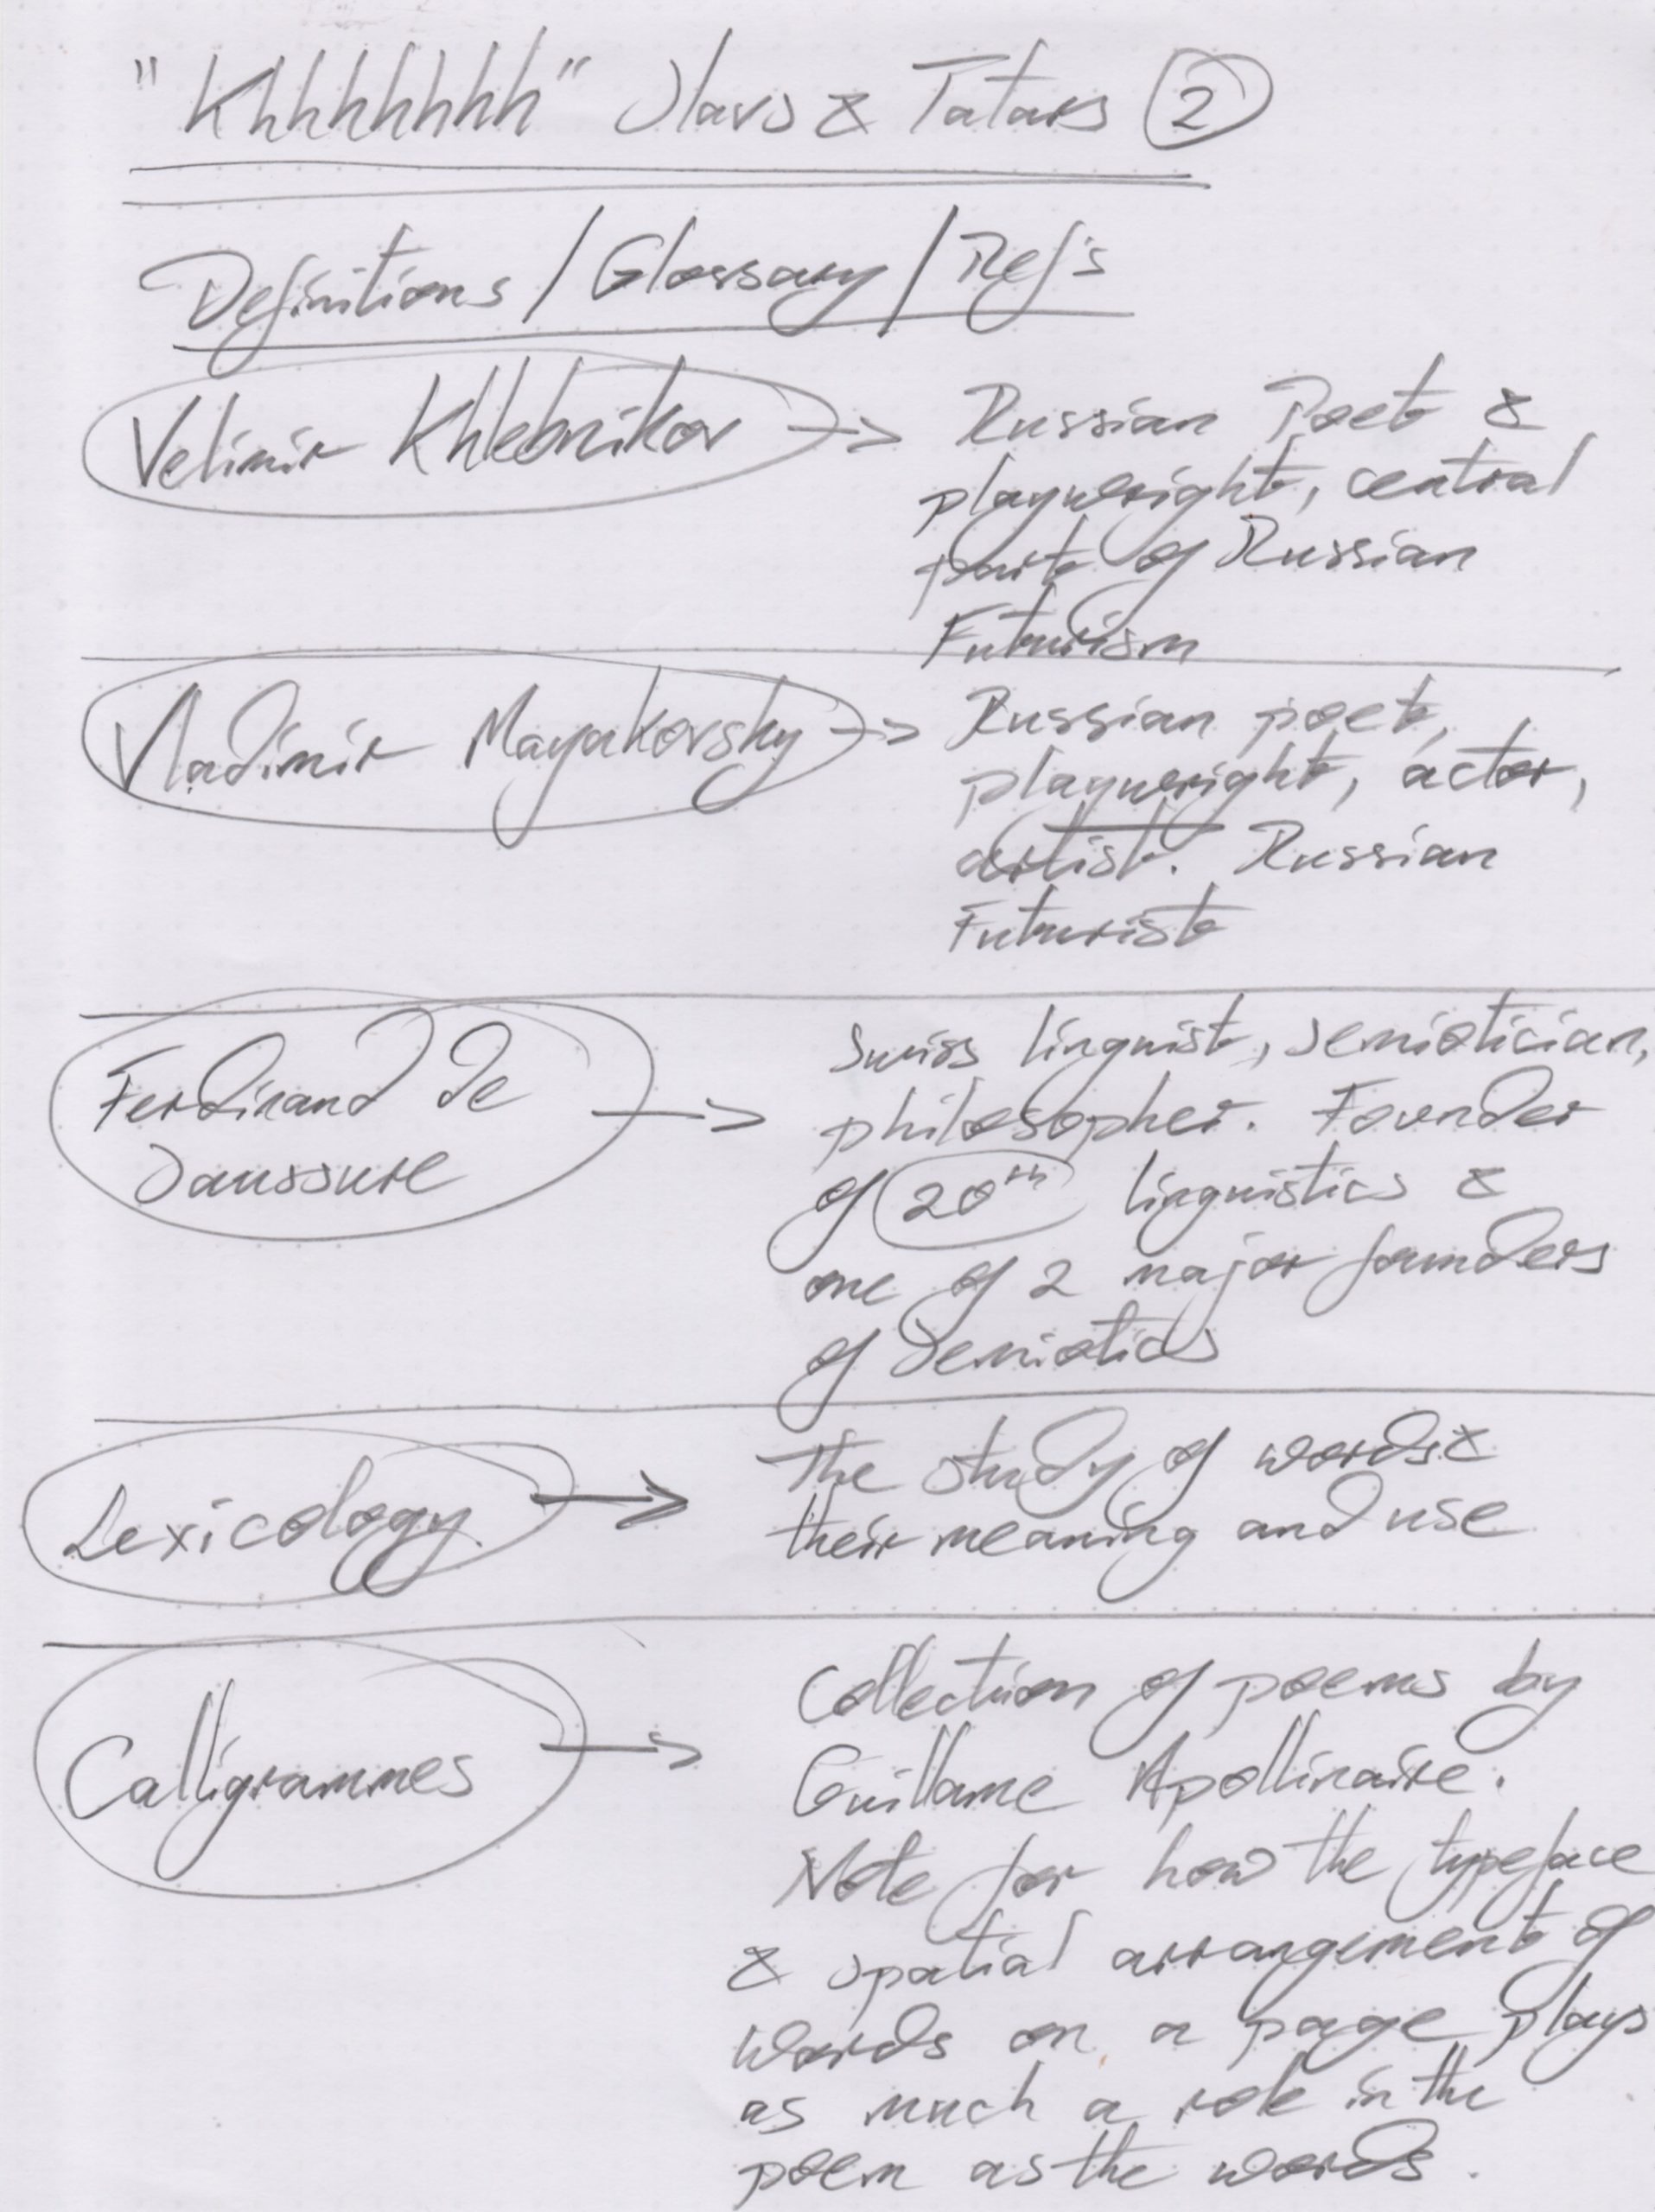 "Khhhhhhh" Slavs & Tatars 2
Definitions / Glossary / Ref's
Velimir Khlebnikov → Russian Poet &
playwright, central
part of Russian
Futurism
Vladimir Mayakovsky → Russian poet,
playwright, actor,
artist. Russian
Futurist
Ferdinand de
Saussure → Swiss linguist, semiotician,
philosopher. Founder
of 20th linguistics &
one of 2 major founders
of Semiotics
Lexicology → The study of words &
their meaning and use
Calligrammes → Collection of poems by
Guillame Apollinaire.
Note for how the typeface
& spatial arrangement of
words on a page plays
as much a role in the
poem as the words.